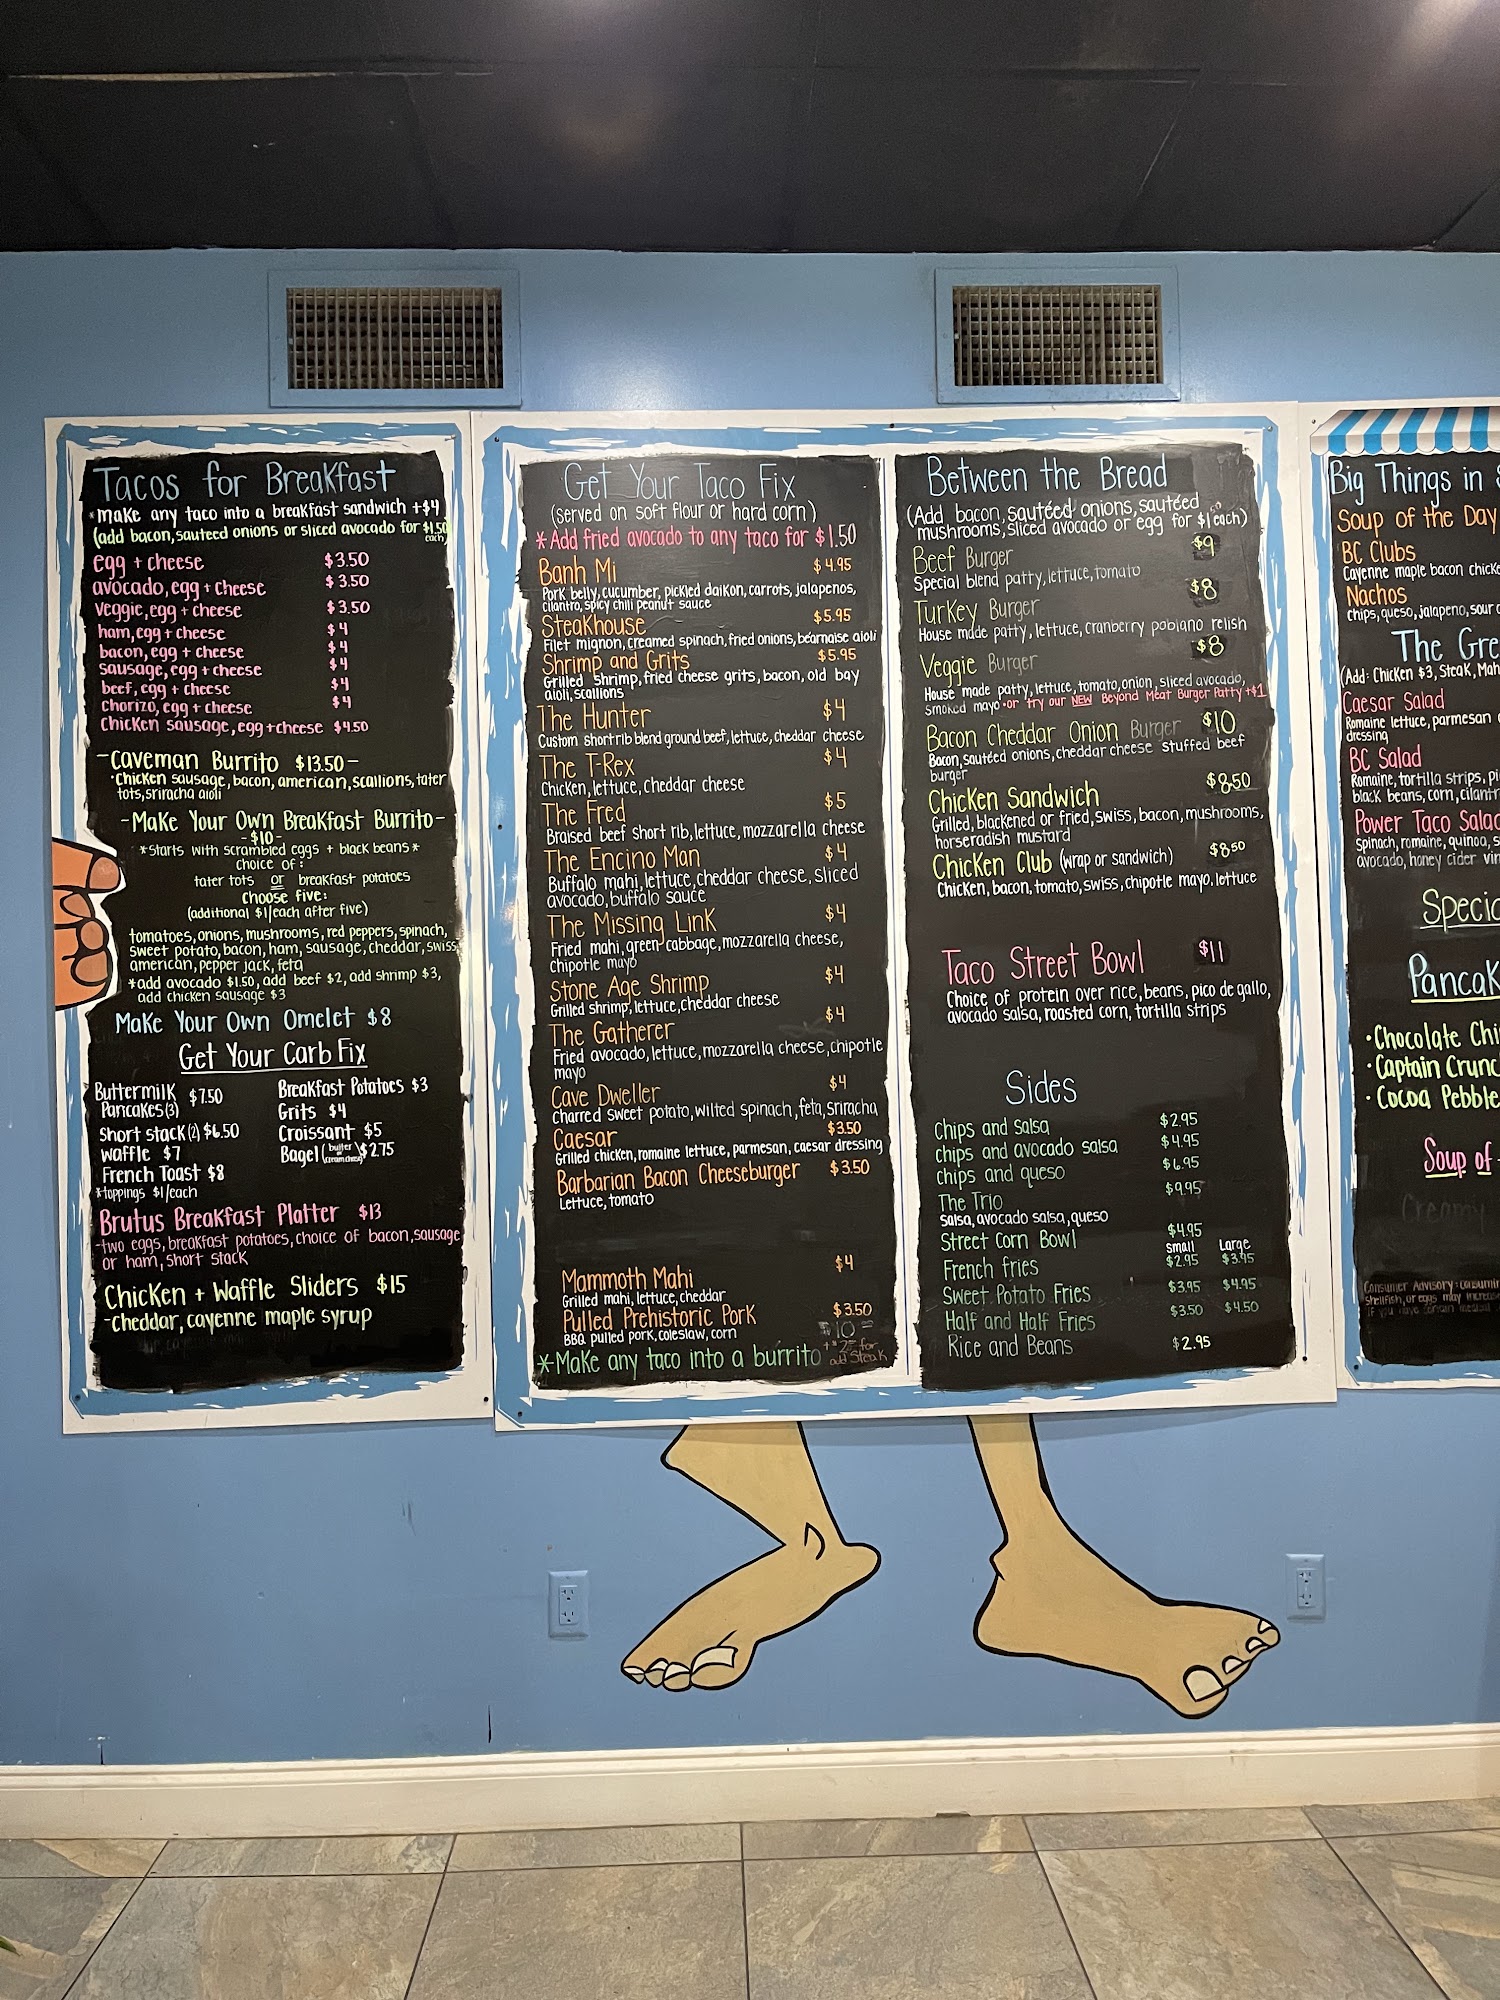 Tacos for Breakfast
*make any taco into a breakfast sandwich +$4
(add bacon, sauteed onions or sliced avocado for $1.50 each)
egg + cheese $3.50
avocado, egg + cheese $3.50
veggie, egg + cheese $3.50
ham, egg + cheese $4
bacon, egg + cheese $4
sausage, egg + cheese $4
beef, egg + cheese $4
chorizo, egg + cheese $4
chicken sausage, egg + cheese $4.50
-Caveman Burrito $13.50-
*Chicken sausage, bacon, american, scallions, tater
tots, sriracha aioli
-Make Your Own Breakfast Burrito-
-$10-
*starts with scrambled eggs + black beans*
choice of:
tater tots or breakfast potatoes
choose five:
(additional $1/each after five)
tomatoes, onions, mushrooms, red peppers, spinach,
sweet potato, bacon, ham, sausage, cheddar, swiss
american, pepper jack, feta
*add avocado $1.50, add beef $2, add shrimp $3,
add chicken sausage $3
Make Your Own Omelet $8
Get Your Carb Fix
Buttermilk Pancakes (3) $7.50
Short stack (2) $6.50
waffle $7
French Toast $8
*toppings $1/each
Breakfast Potatoes $3
Grits $4
Croissant $5
Bagel (butter or cream cheese) $2.75
Brutus Breakfast Platter $13
-two eggs, breakfast potatoes, choice of bacon, sausage
or ham, short stack
Chicken + Waffle Sliders $15
-cheddar, cayenne maple syrup
Get Your Taco Fix
(served on soft flour or hard corn)
*Add fried avocado to any taco for $1.50
Banh Mi $4.95
Pork belly, cucumber, pickled daikon, carrots, jalapenos,
cilantro, spicy chili peanut sauce
Steakhouse $5.95
Filet mignon, creamed spinach, fried onions, béarnaise aioli
Shrimp and Grits $5.95
Grilled shrimp, fried cheese grits, bacon, old bay
aioli, scallions
The Hunter $4
Custom shortrib blend ground beef, lettuce, cheddar cheese
The T-Rex $4
Chicken, lettuce, cheddar cheese
The Fred $5
Braised beef short rib, lettuce, mozzarella cheese
The Encino Man $4
Buffalo mahi, lettuce, cheddar cheese, sliced
avocado, buffalo sauce
The Missing Link $4
Fried mahi, green cabbage, mozzarella cheese,
chipotle mayo
Stone Age Shrimp $4
Grilled shrimp, lettuce, cheddar cheese
The Gatherer $4
Fried avocado, lettuce, mozzarella cheese, chipotle
mayo
Cave Dweller $4
Charred sweet potato, wilted spinach, feta, sriracha
Caesar $3.50
Grilled chicken, romaine lettuce, parmesan, caesar dressing
Barbarian Bacon Cheeseburger $3.50
Lettuce, tomato
Mammoth Mahi $4
Grilled mahi, lettuce, cheddar
Pulled Prehistoric Pork $3.50
BBQ pulled pork, coleslaw, corn
*Make any taco into a burrito $10
Between the Bread
(Add bacon, sautéed onions, sautéed
mushrooms, sliced avocado or egg for $1 each)
Beef Burger $9
Special blend patty, lettuce, tomato
Turkey Burger $8
House made patty, lettuce, cranberry poblano relish
Veggie Burger $8
House made patty, lettuce, tomato, onion, sliced avocado,
smoked mayo -or try our NEW Beyond Meat Burger Patty +$1
Bacon Cheddar Onion Burger $10
Bacon, sautéed onions, cheddar cheese stuffed beef
burger
Chicken Sandwich $8.50
Grilled, blackened or fried, swiss, bacon, mushrooms,
horseradish mustard
Chicken Club (wrap or sandwich) $8.50
Chicken, bacon, tomato, swiss, chipotle mayo, lettuce
Taco Street Bowl $11
Choice of protein over rice, beans, pico de gallo,
avocado salsa, roasted corn, tortilla strips
Sides
Chips and salsa $2.95
chips and avocado salsa $4.95
chips and queso $6.95
The Trio $9.95
Salsa, avocado salsa, queso
Street Corn Bowl $4.95
small Large
French fries $2.95 $3.95
Sweet Potato Fries $3.95 $4.95
Half and Half Fries $3.50 $4.50
Rice and Beans $2.95
Big Things in
Soup of the Day
BC Clubs
Cayenne maple bacon
Nachos
Chips, queso, jalapeno, sour
The Gre
(Add: Chicken $3, Steak, Mah
Caesar Salad
Romaine lettuce, parmesan
dressing
BC Salad
Romaine, tortilla strips,
black beans, corn,
Power Taco Salad
Spinach, romaine, quinoa,
avocado, honey cider
Specia
Pancak
•Chocolate Chi
•Captain Crunc
•Cocoa Pebble
Soup of
Creamy
Consumer Advisory: consumin
shellfish, or eggs may increase
if you have certain medical